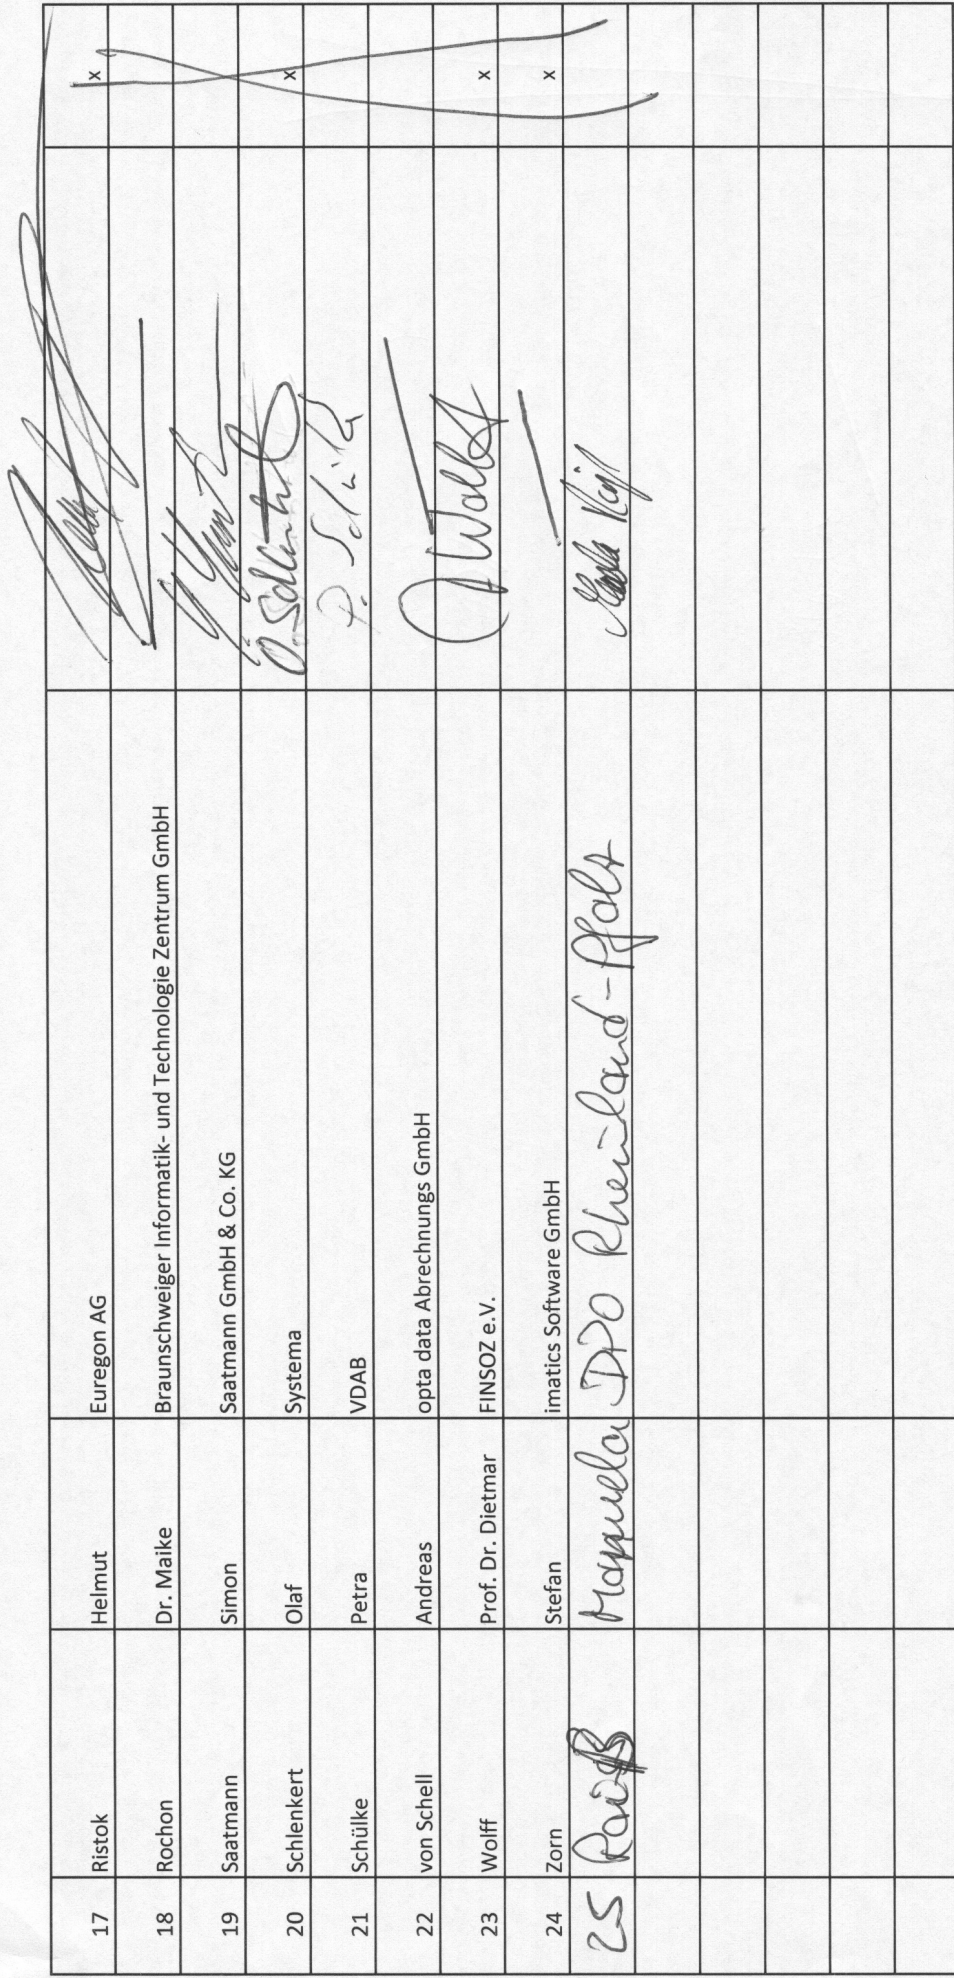 17 Ristok Helmut Euregon AG x
18 Rochon Dr. Maike Braunschweiger Informatik- und Technologie Zentrum GmbH
19 Saatmann Simon Saatmann GmbH & Co. KG
20 Schlenkert Olaf Systema O. Schlenkert x
21 Schülke Petra VDAB P. Schülke
22 von Schell Andreas opta data Abrechnungs GmbH
23 Wolff Prof. Dr. Dietmar FINSOZ e.V. x
24 Zorn Stefan imatics Software GmbH x
25 Raiß Manuela DPO Rheinland-Pfalz